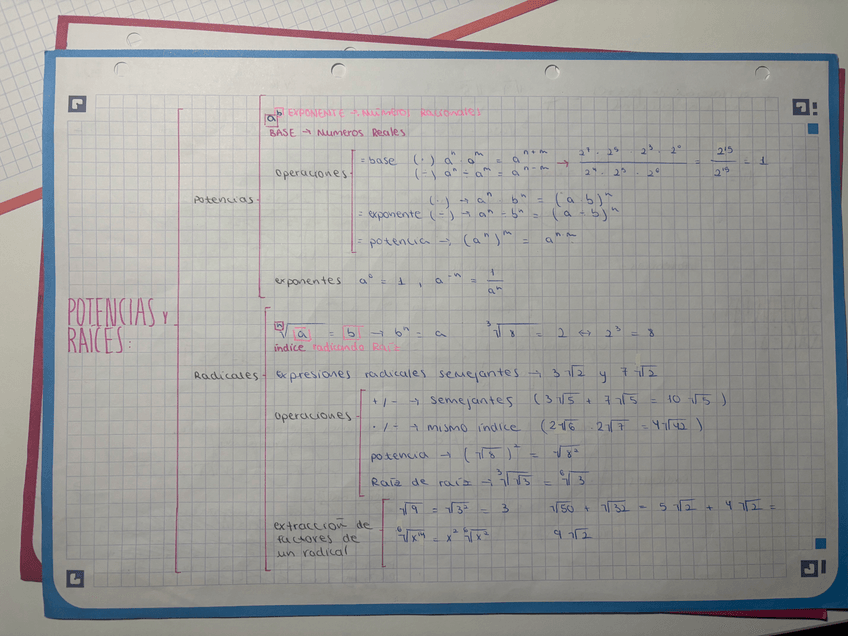 POTENCIAS Y
RAICES:
Potencias
a^b EXPONENTE → Numeros Racionales
BASE → Numeros Reales
Operaciones
= base (·) a^n · a^m = a^(n+m) →
(÷) a^n ÷ a^m = a^(n-m)
= 2^15 / 2^15 = 1
(·) → a^n · b^n = (a·b)^n
= exponente (÷) → a^n ÷ b^n = (a ÷ b)^n
= potencia → (a^n)^m = a^(n·m)
exponentes a^0 = 1 , a^-n = 1/a^n
Radicales
ⁿ√a = b → b^n = a ³√8 = 2 ↔ 2^3 = 8
índice radicando Raíz
expresiones radicales semejantes → 3√2 y 7√2
Operaciones
+/- → semejantes (3√5 + 7√5 = 10√5)
·/÷ → mismo índice (2√6 · 2√7 = 4√42)
potencia → (√8)^2 = √8^2
Raíz de raíz → ³√√3 = ⁶√3
extracción de
factores de
un radical
√9 = √3^2 = 3 √50 + √32 = 5√2 + 4√2 =
9√2